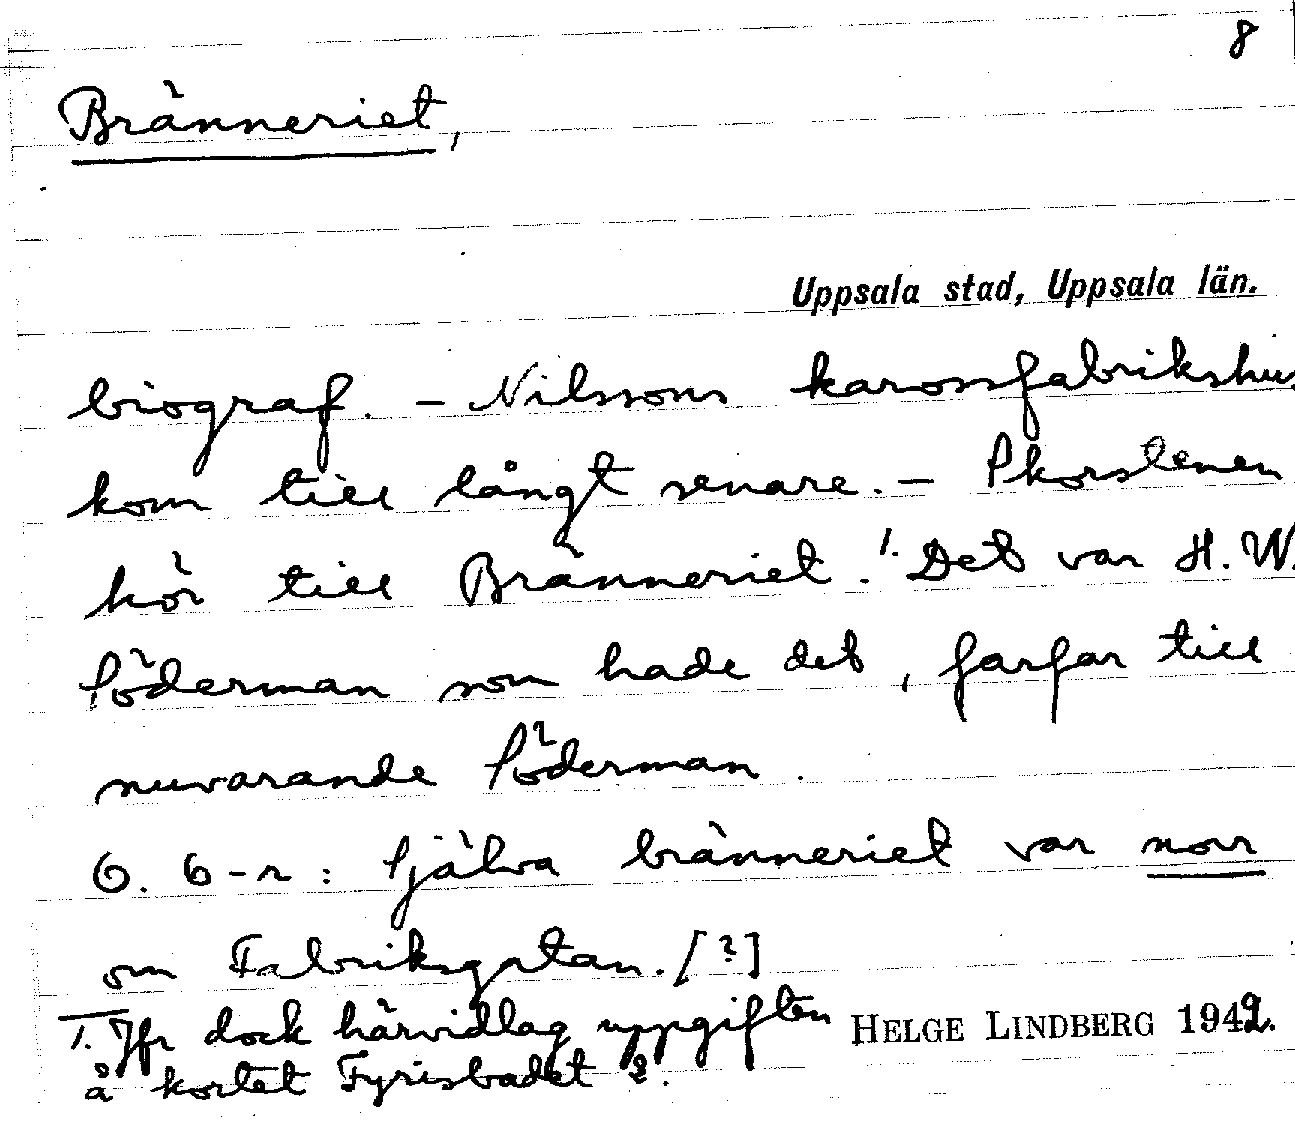 8
Bränneriet,
Uppsala stad, Uppsala län.
biograf. - Nilssons karossfabrikshus
kom till långt senare. - Skorstenen
hör till Bränneriet.1. Det var H. W.
Söderman som hade det, farfar till
nuvarande Söderman.
O. b-r: Själva bränneriet var norr
om Fabriksgatan. [?]
1. Jfr dock härvidlag uppgiften
å kortet Fyrisbadet 2.
HELGE LINDBERG 1942.